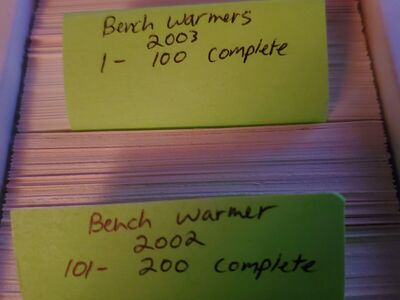 Bench Warmers
2003
1- 100 complete
Bench Warmer
2002
101- 200 complete